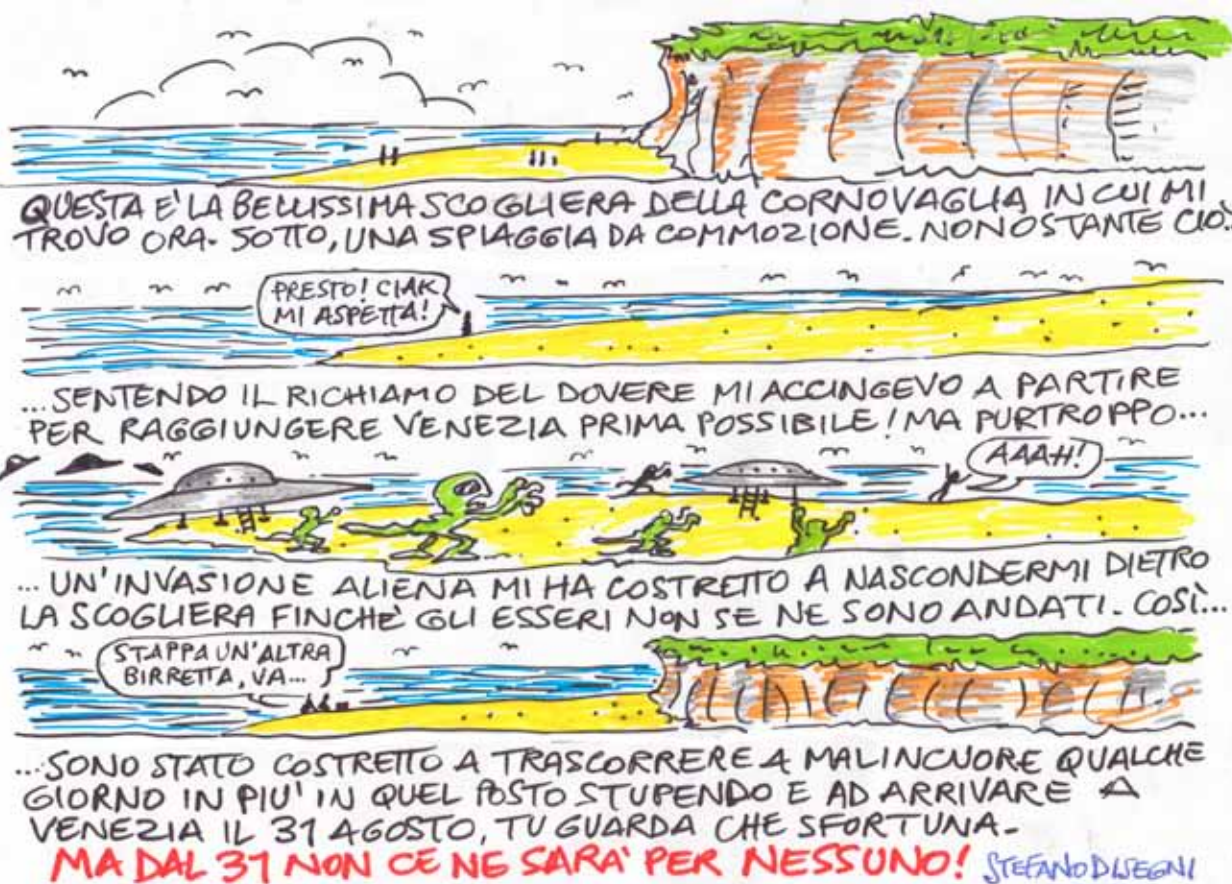 QUESTA E' LA BELLISSIMA SCOGLIERA DELLA CORNOVAGLIA IN CUI MI
TROVO ORA. SOTTO, UNA SPIAGGIA DA COMMOZIONE. NONOSTANTE CIO'..
PRESTO! CIAK
MI ASPETTA!
...SENTENDO IL RICHIAMO DEL DOVERE MI ACCINGEVO A PARTIRE
PER RAGGIUNGERE VENEZIA PRIMA POSSIBILE! MA PURTROPPO...
AAAH!
...UN'INVASIONE ALIENA MI HA COSTRETTO A NASCONDERMI DIETRO
LA SCOGLIERA FINCHÈ GLI ESSERI NON SE NE SONO ANDATI. COSÌ...
STAPPA UN'ALTRA
BIRRETTA, VA...
...SONO STATO COSTRETTO A TRASCORRERE A MALINCUORE QUALCHE
GIORNO IN PIU' IN QUEL POSTO STUPENDO E AD ARRIVARE A
VENEZIA IL 31 AGOSTO, TU GUARDA CHE SFORTUNA.
MA DAL 31 NON CE NE SARA' PER NESSUNO! STEFANO DISEGNI